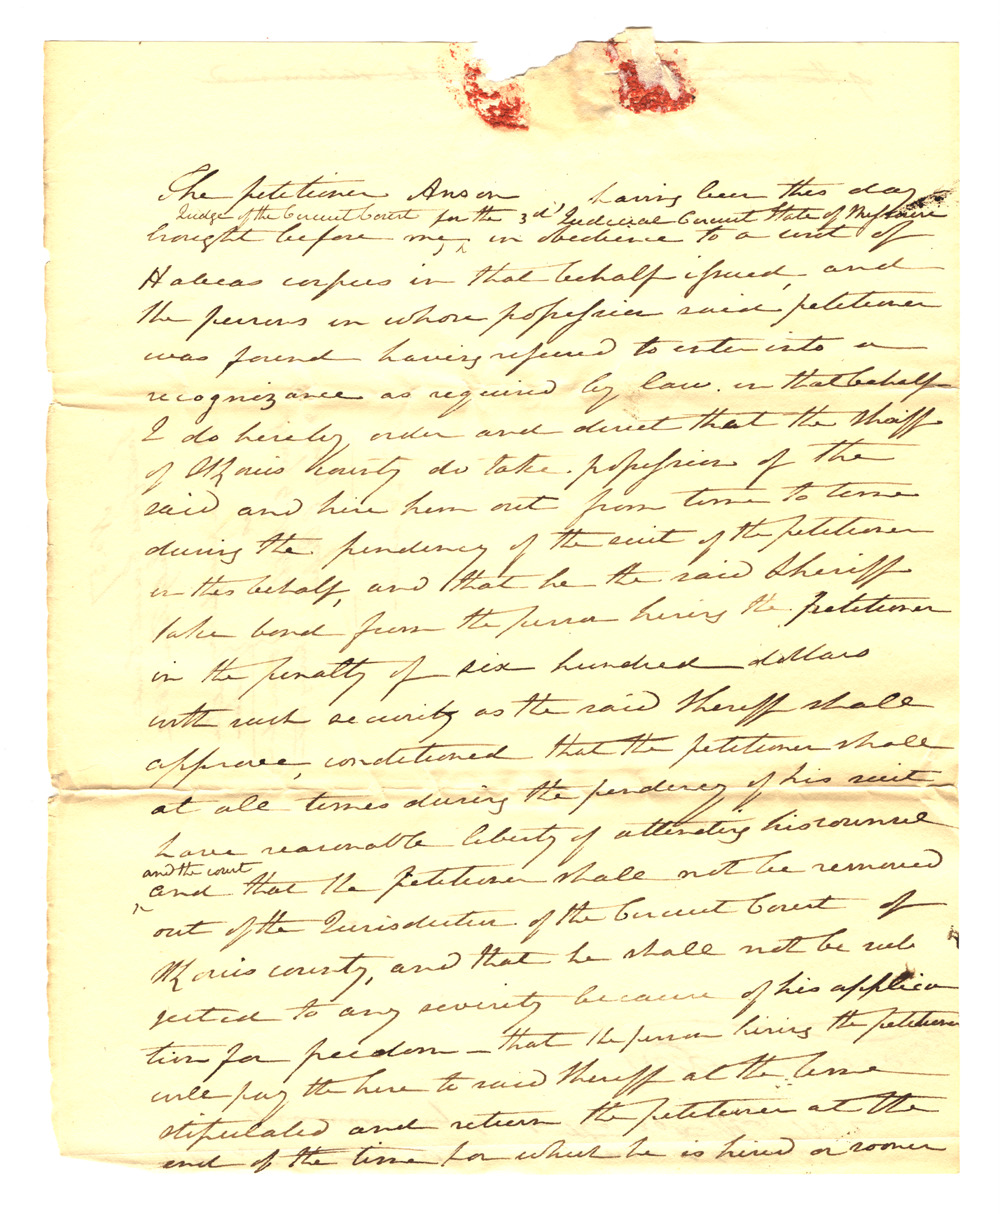 The petitioner Anson having been this day
Judge of the Circuit Court for the 3d Judicial Circuit State of Missouri
brought before me, ^ in obedience to a writ of
Habeas corpus in that behalf issued, and
the persons in whose possession said petitioner
was found having refused to enter into a
recognizance as required by law. in that behalf
I do hereby order and direct that the Sheriff
of St Louis County do take possession of the
said and hire him out from time to time
during the pendency of the suit of the petitioner
in this behalf, and that he the said Sheriff
take bond from the person hiring the petitioner
in the penalty of six hundred dollars
with such security as the said Sheriff shall
approve, conditioned that the petitioner shall
at all times during the pendency of his suit
have reasonable liberty of attending his counsel
and the court
^ and that the petitioner shall not be removed
out of the Jurisdiction of the Circuit Court of
St Louis county, and that he shall not be sub
jected to any severity because of his applica
tion for freedom - that the person hiring the petitioner
will pay the hire to said Sheriff at the time
stipulated and return the petitioner at the
end of the time for which he is hired or sooner